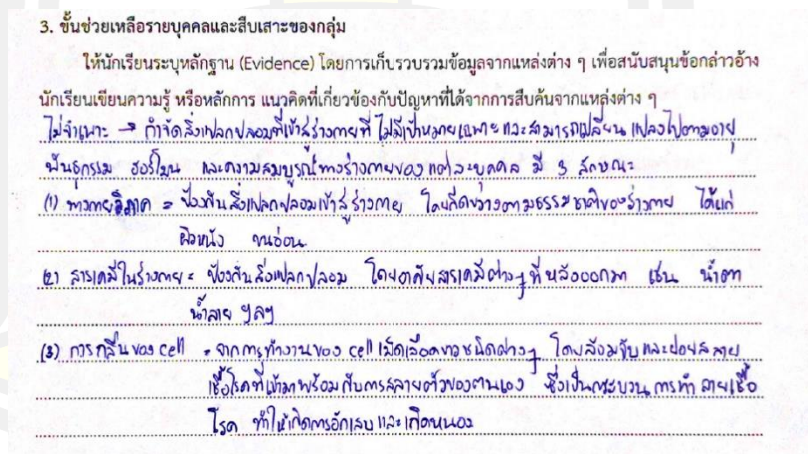 3. ขั้นช่วยเหลือรายบุคคลและสืบเสาะของกลุ่ม
ให้นักเรียนระบุหลักฐาน (Evidence) โดยการเก็บรวบรวมข้อมูลจากแหล่งต่าง ๆ เพื่อสนับสนุนข้อกล่าวอ้าง
นักเรียนเขียนความรู้ หรือหลักการ แนวคิดที่เกี่ยวข้องกับปัญหาที่ได้จากการสืบค้นจากแหล่งต่าง ๆ
ไม่จำเพาะ → กำจัดสิ่งแปลกปลอมที่เข้าสู่ร่างกายที่ไม่มีเป้าหมายเฉพาะและสามารถเปลี่ยนแปลงไปตามอายุ
พันธุกรรม ฮอร์โมน และความสมบูรณ์ทางร่างกายของแต่ละบุคคล มี 3 ลักษณะ
(1) ทางกายวิภาค = ป้องกันสิ่งแปลกปลอมเข้าสู่ร่างกาย โดยกีดขวางตามธรรมชาติของร่างกาย ได้แก่
ผิวหนัง ขนอ่อน
(2) สารเคมีในร่างกาย = ป้องกันสิ่งแปลกปลอม โดยอาศัยสารเคมีต่างๆ ที่หลั่งออกมา เช่น น้ำตา
น้ำลาย ฯลฯ
(3) การกลืนของ cell = จากการทำงานของ cell เม็ดเลือดขาวชนิดต่างๆ โดยล้อมจับและย่อยสลาย
เชื้อโรคที่เข้ามาพร้อมกับการสลายตัวของตนเอง ซึ่งเป็นกระบวนการทำลายเชื้อ
โรค ทำให้เกิดการอักเสบและเกิดหนอง